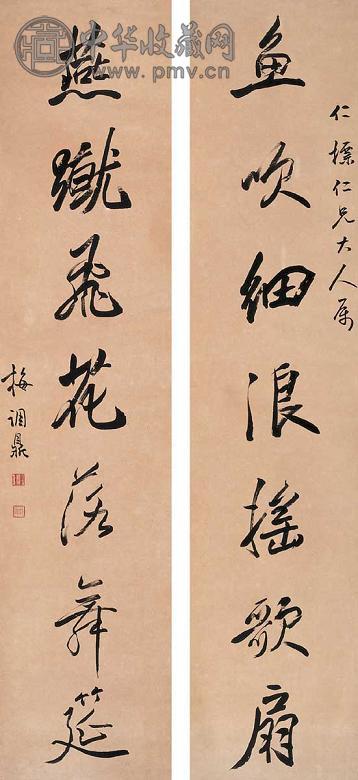 仁檪仁兄大人属
鱼吹细浪摇歌扇
燕蹴飞花落舞筵
梅调鼎
中华收藏网
www.pmv.cn